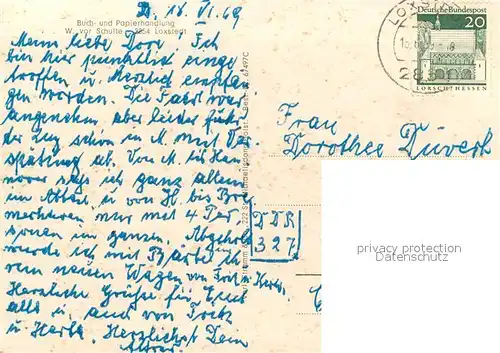 D. 18. VI. 69
Buch- und Papierhandlung
W. vor Schulte - 2854 Loxstedt
Meine liebe Dore! Ich
bin hier pünktlich einge
troffen u. herzlich empfan
gen worden. Die Fahrt war
angenehm aber leider fuhr
der Zug schon in M. mit Ver
spätung ab. Von M. bis Han
nover saß ich ganz allein
im Abteil u. von H. bis Bre
merhaven nur mit 4 Per
sonen im ganzen. Abgeholt
wurde ich mit Bärbel in
neuen Wagen von Fritz u. Herta.
Herzliche Grüße für Euch
alle u. auch von Fritz
u. Herta. Herzlichst Dein
LOXSTEDT
Deutsche Bundespost
20
LORSCH/HESSEN
Frau
Dorothee Düverk
DDR
327
privacy protection